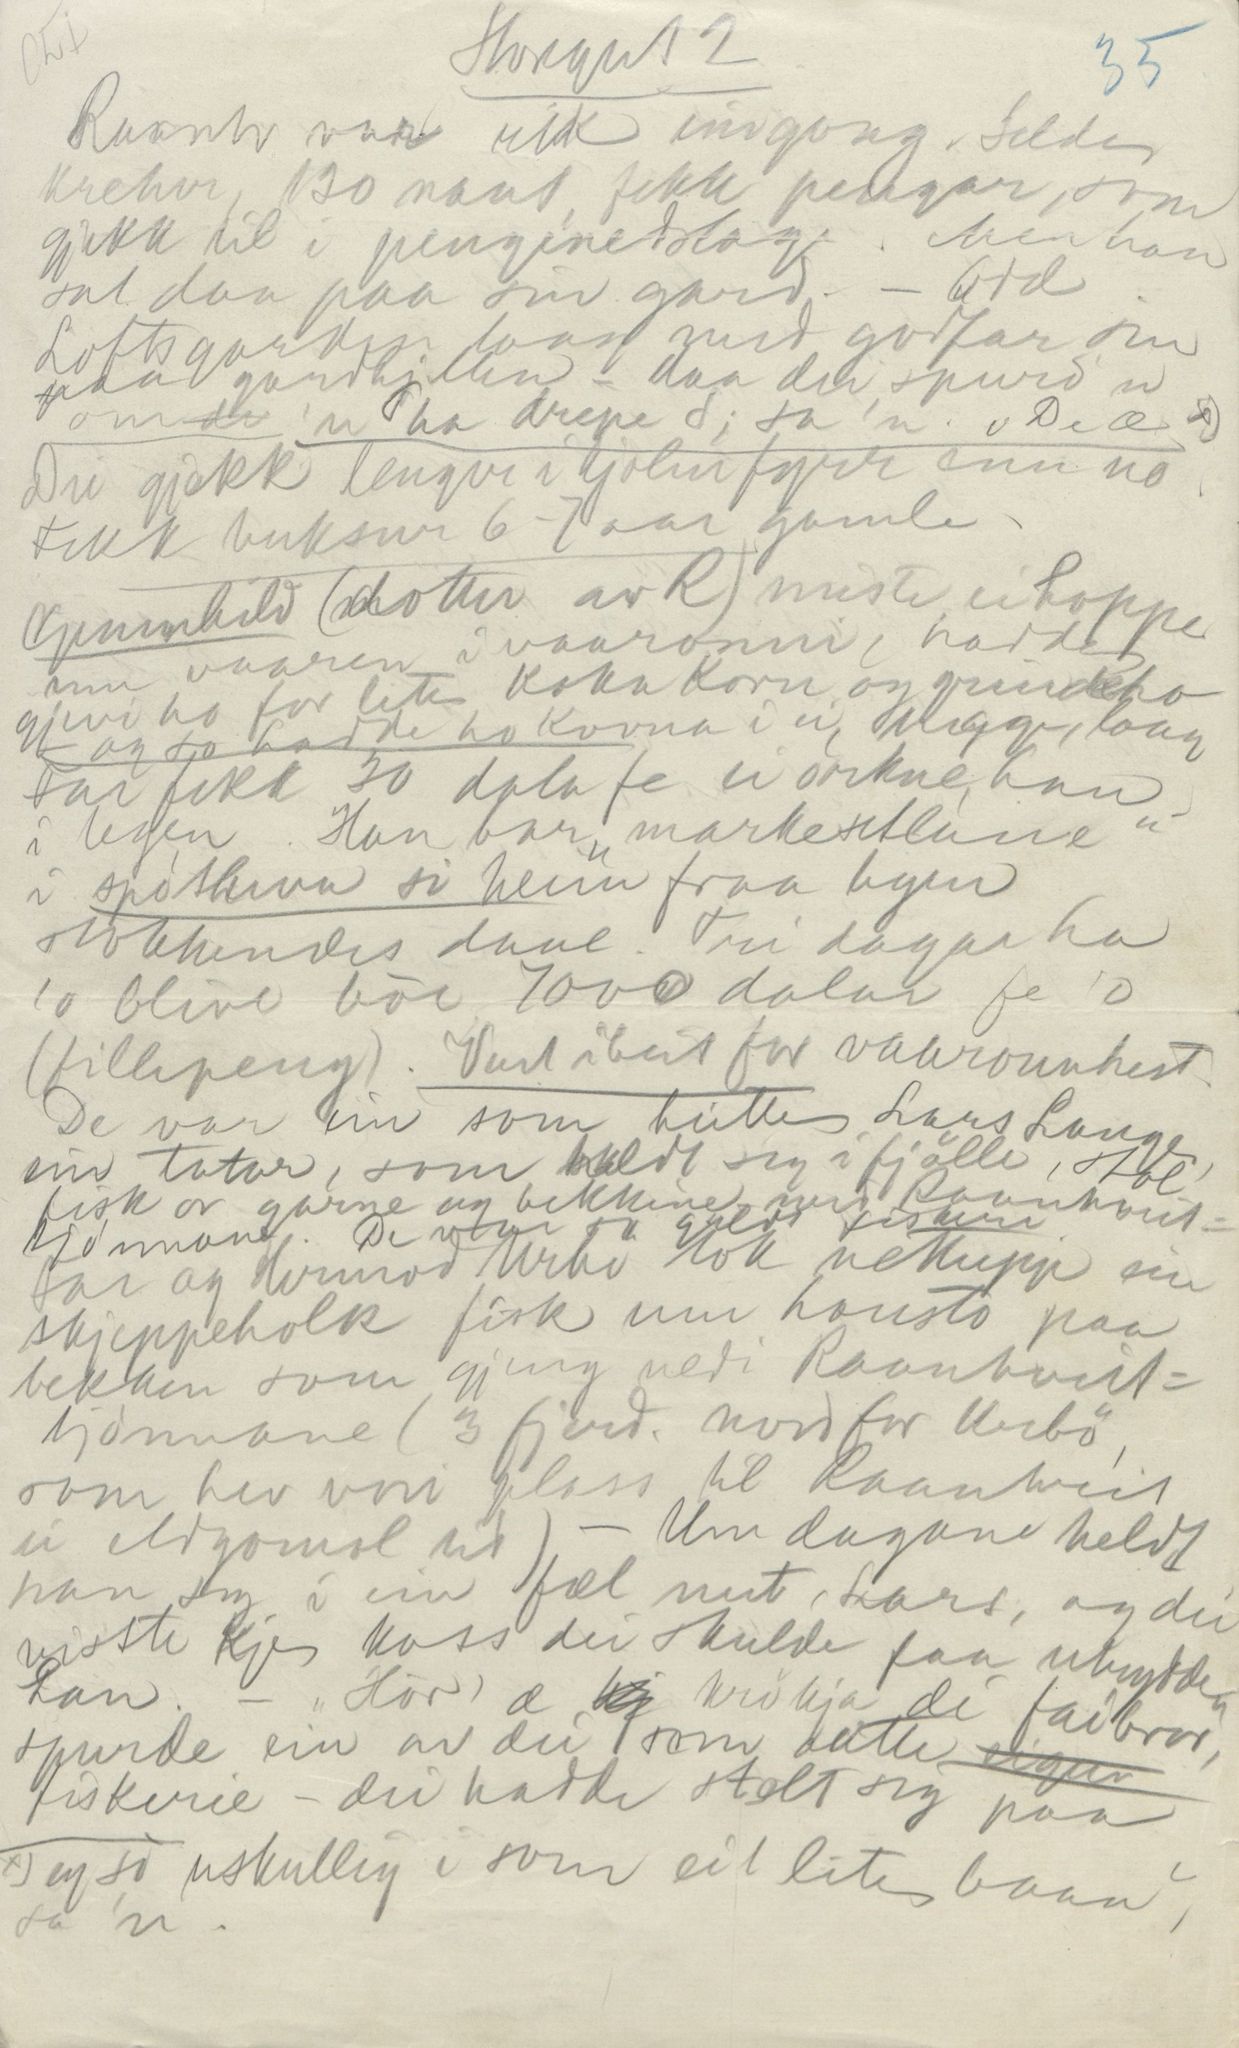 Storegut 2
35
Raantv var rik eingong. Selde
kretur, 130 naut, fekk pengar, som
gjekk til i penginedslag. Men han
sat daa paa sin gard. – Odd
Loftsgarden laag med godfar sin
paa gardhjellen – daa dei spurd'n
om 'n ha drepe 'd; sa 'n. "De æ x)
Dei gjekk lenger i kjolen fyrr enn no
Fekk buksur 6–7 aar gamle.
Gunnhild (dotter av R) miste ei hoppe
um vaaren i vaaronni, hadde
gjevi ho for lite koka korn og
og so hadde ho kovna i ei, laag
Far fekk 30 dala fe ei orkne, han
i legen. Han bar "
i heim fraa byen
daae. Tri dagar ha
'o blive bøe 7000 dalar fe 'o
(fillepeng). Vart i beit for vaaronnhest
De var ein som heitte Lars Lange,
ein tatar, som heldt seg i fjølle, stal
fisk or garne og bekkine ved Raantveit=
tjønnane. De var so gildt fiskeri
Far og Tormod Urbø tok nettupp ein
skjeppeholk fisk um hausto paa
bekken som gjeng nedi Raantveit=
tjønnane (3 fjerd. nord for Urbø,
som hev vori plass til Raantveit
ei eldgomol tid) – Um dagane heldt
han seg i ein fæl nut, Lars, og dei
visste kje koss dei skulde faa utrydde
han. – "Hør, æ krøkja di faibror,
spurde ein av dei som aatte
fiskerie – dei hadde stelt seg paa
x) eg so uskullig i som eit lite baan",
sa 'n.